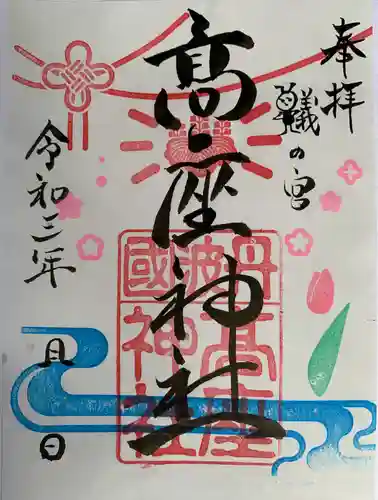 奉拝
蟻の宮
高座神社
令和三年
月
日
丹波
國
高座
神社